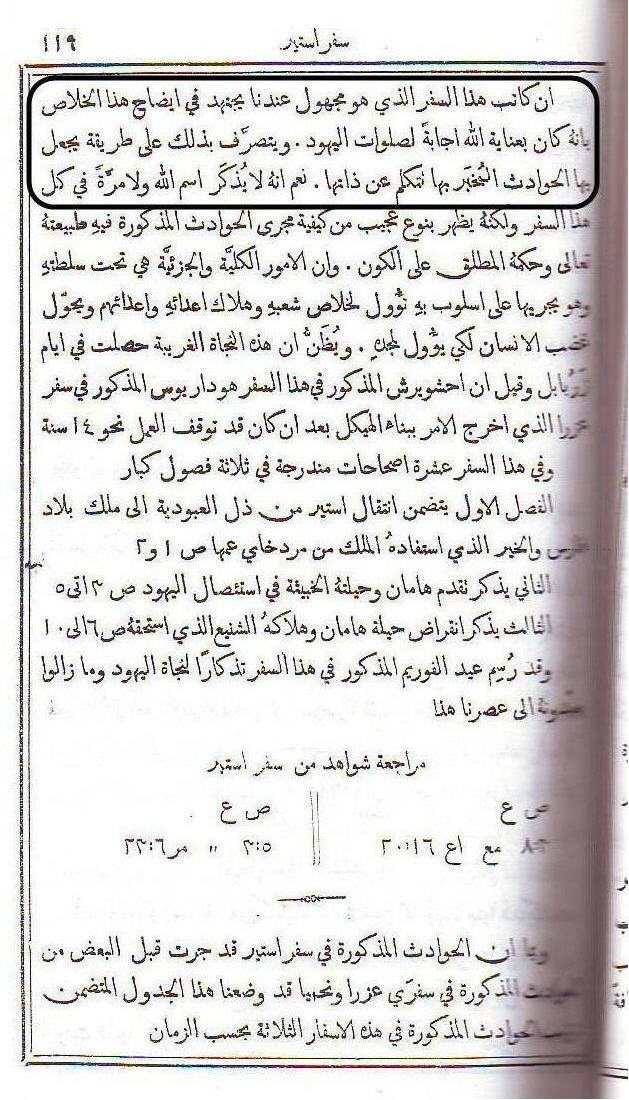 سفر استير ١١٩
ان كاتب هذا السفر الذي هو مجهول عندنا يجتهد في ايضاح هذا الخلاص
بانهُ كان بعناية الله اجابةً لصلوات اليهود . ويتصرَّف بذلك على طريقة يجعل
بها الحوادث المُخبَر بها نتكلم عن ذاتها . نعم انهُ لا يُذكَر اسم الله ولا مرَّةً في كل
هذا السفر ولكنهُ يظهر بنوع عجيب من كيفية مجرى الحوادث المذكورة فيهِ طبيعتهُ
تعالى وحكمهُ المطلق على الكون . وان الامور الكليَّة والجزئيَّة هي تحت سلطتهِ
وهو يجريها على اسلوب بهِ تؤُول لخلاص شعبهِ وهلاك اعدائهِ واعدائهم ويحوّل
غضب الانسان لكي يؤُول لمجدهِ . ويُظَنُّ ان هذه النجاة الغريبة حصلت في ايام
زربابل وقيل ان احشويرش المذكور في هذا السفر هو داريوس المذكور في سفر
عزرا الذي اخرج الامر ببناء الهيكل بعد ان كان قد توقف العمل نحو ١٤ سنة
وفي هذا السفر عشرة اصحاحات مندرجة في ثلاثة فصول كبار
الفصل الاول يتضمن انتقال استير من ذل العبودية الى ملك بلاد
فارس والخير الذي استفادهُ الملك من مردخاي عمها ص ١ و٢
الثاني يذكر تقدم هامان وحيلتهُ الخبيثة في استئصال اليهود ص ٣ الى ٥
الثالث يذكر انقراض حيلة هامان وهلاكهُ الشنيع الذي استحقهُ ص ٦ الى ١٠
وقد رُسِم عيد الفوريم المذكور في هذا السفر تذكارًا لنجاة اليهود وما زالوا
الى عصرنا هذا
مراجعة شواهد من سفر استير
ص ع ص ع
مع اع ١٦:٢٠ ٥:٣ " مر ٦:٢٣
وبما ان الحوادث المذكورة في سفر استير قد جرت قبل البعض من
الحوادث المذكورة في سفرَي عزرا ونحميا قد وضعنا هذا الجدول المتضمن
الحوادث المذكورة في هذه الاسفار الثلاثة بحسب الزمان